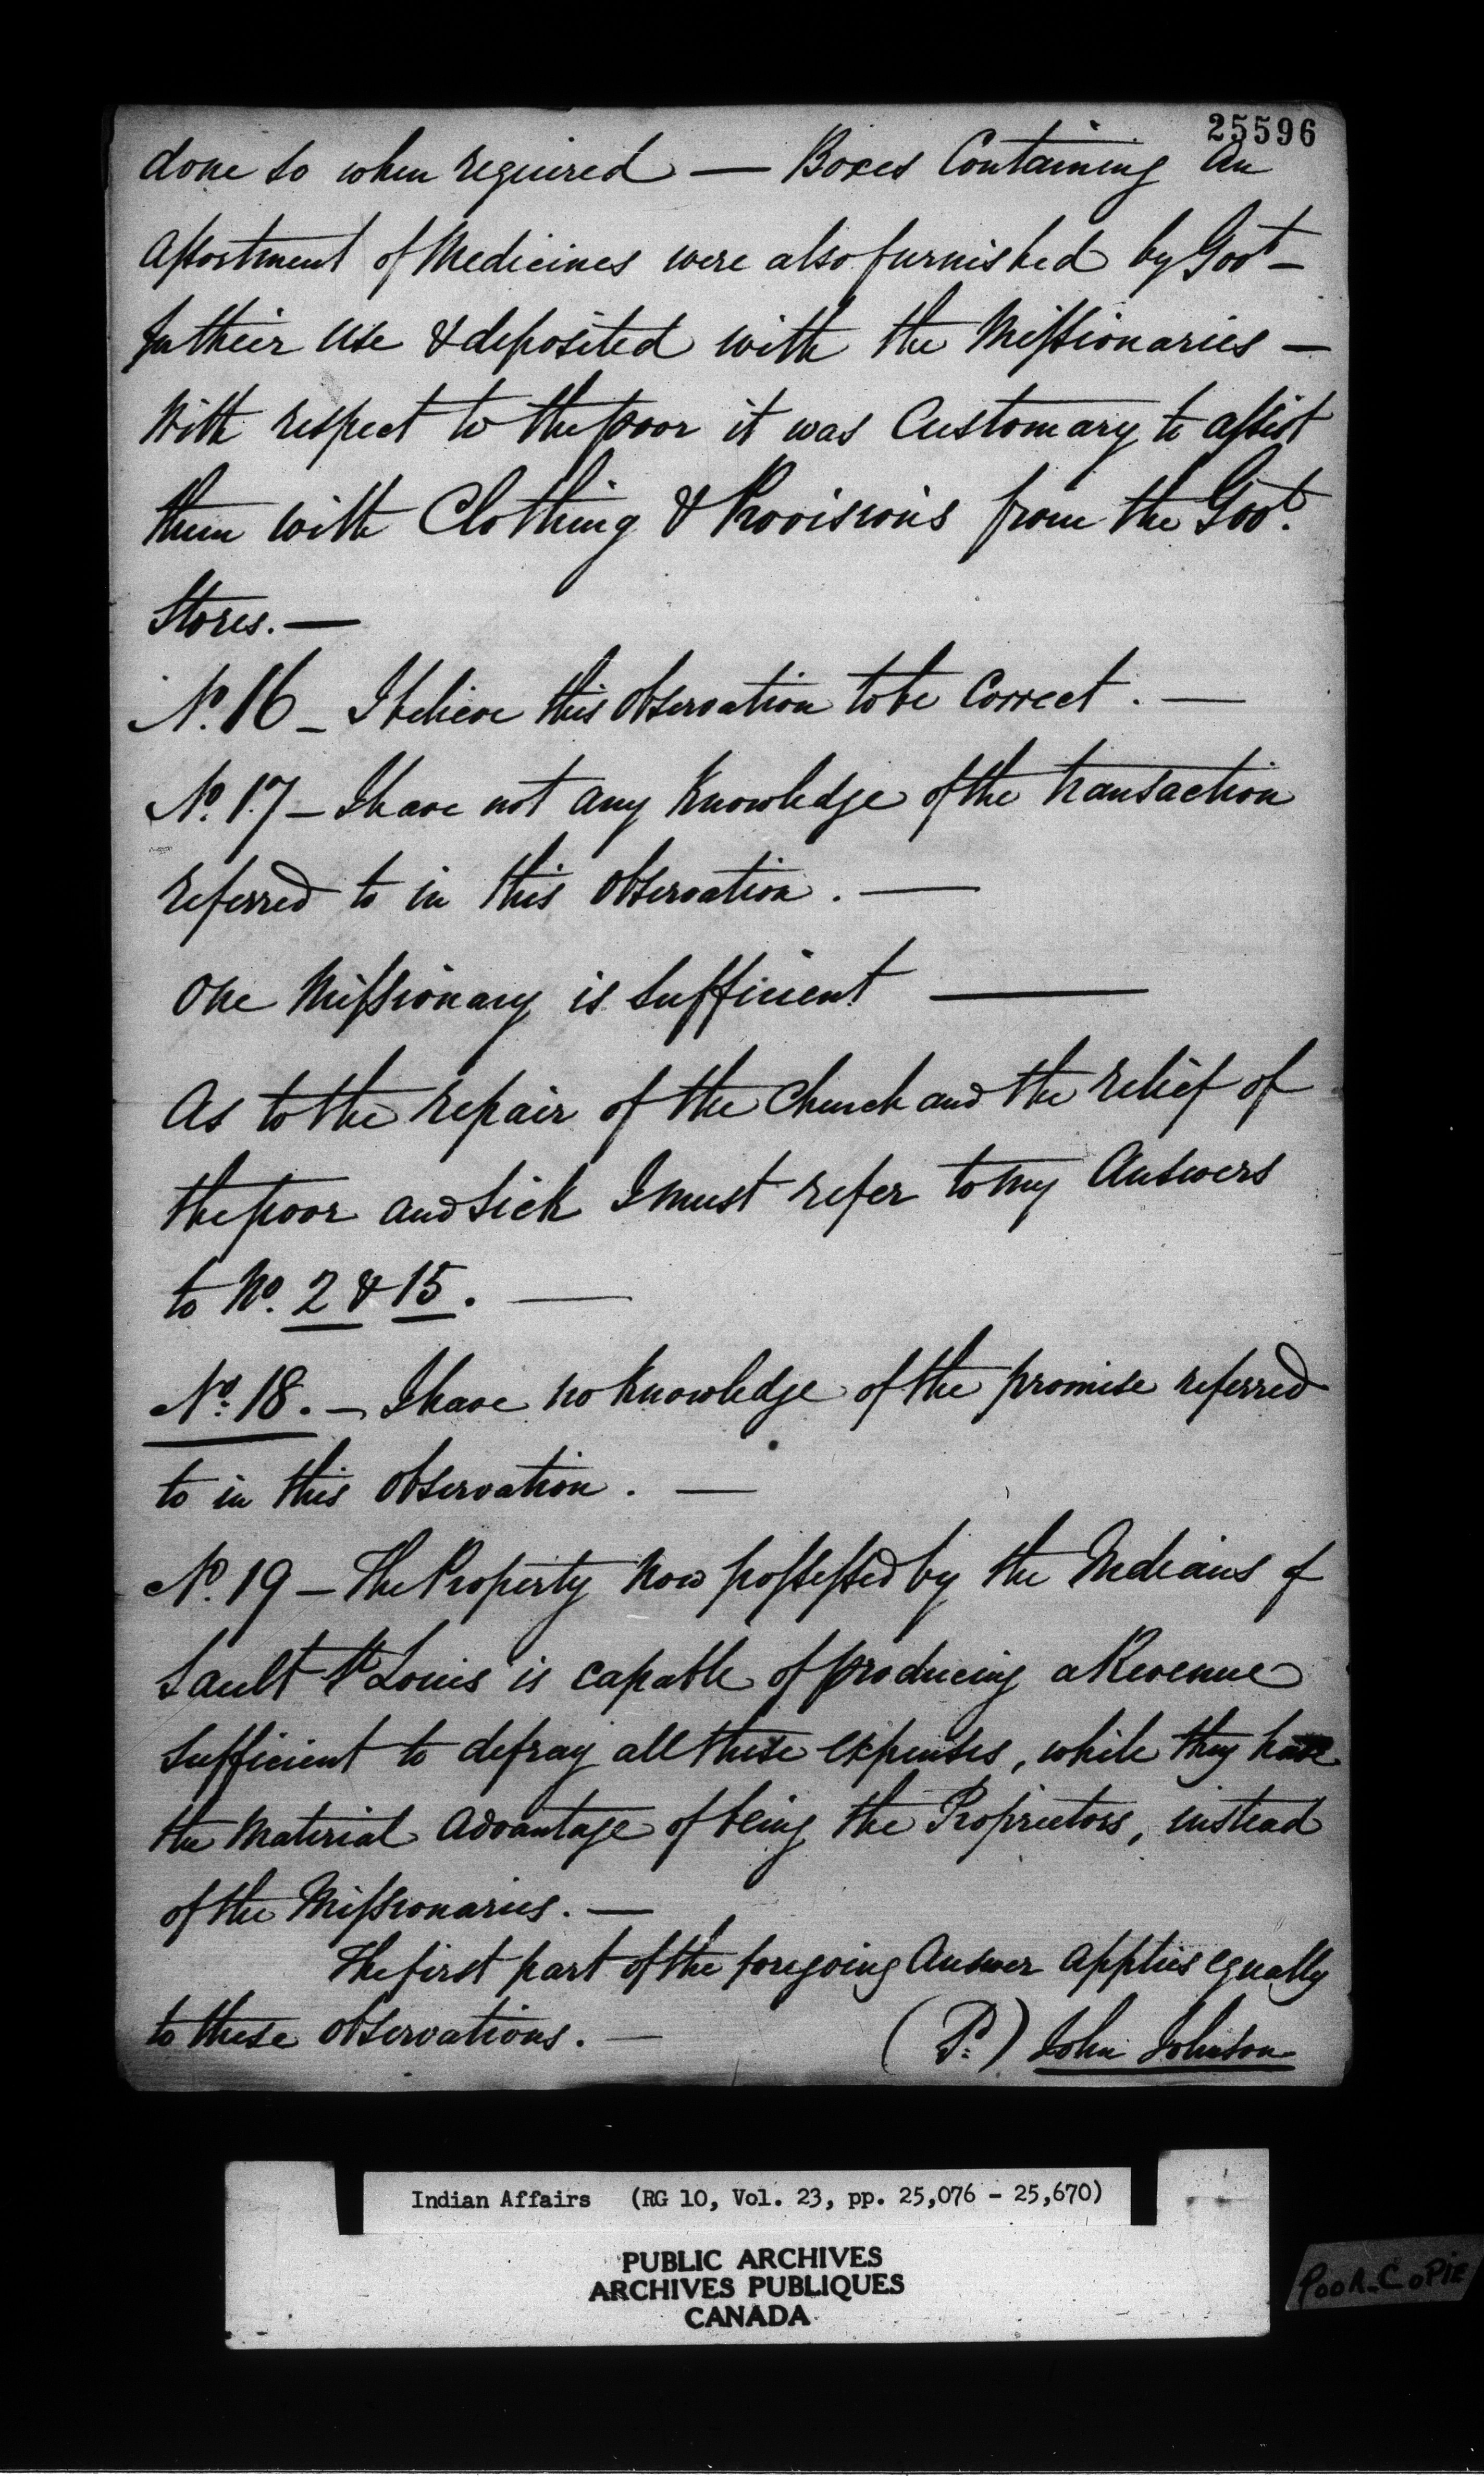 25596
done so when required — Boxes Containing An
Assortment of Medicines were also furnished by Govt —
for their use & deposited with the Missionaries —
With respect to the poor it was Customary to assist
them with Clothing & Provisions from the Govt.
Stores. —
No. 16 – I believe this Observation to be Correct. —
No. 17 – I have not any Knowledge of the transaction
referred to in this Observation. —
One Missionary is sufficient —
As to the repair of the Church and the relief of
the poor and sick I must refer to my Answers
to No. 2 & 15. —
No. 18. – I have no Knowledge of the promise referred
to in this Observation. —
No. 19 – The Property now possessed by the Indians of
Sault St Louis is capable of producing a Revenue
sufficient to defray all these expenses, while they have
the Material Advantage of being the Proprietors, instead
of the Missionaries. —
The first part of the foregoing Answer applies equally
to these observations. —
(Sd:) John Johnson
Indian Affairs (RG 10, Vol. 23, pp. 25,076 - 25,670)
PUBLIC ARCHIVES
ARCHIVES PUBLIQUES
CANADA
POOR-COPIE